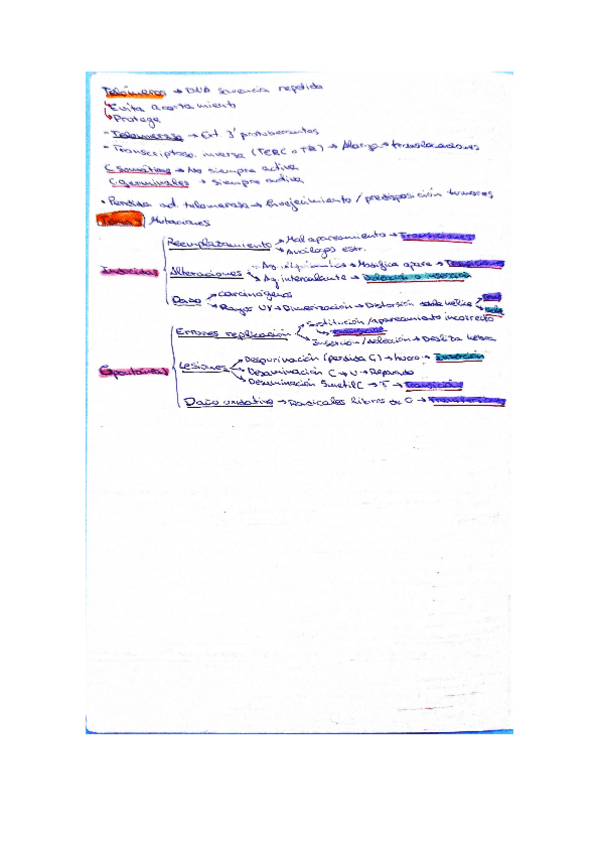 Telómeros → DNA secuencia repetida
Evita acortamiento
Protege
- Telomerasa → Ext. 3' protuberantes
- Transcriptasa inversa (TERC o TR) → Alarga → translocaciones
C somáticas → No siempre activa
C germinales → siempre activa
• Perdida act. telomerasa → Envejecimiento / predisposición tumores
Tema Mutaciones
Reemplazamiento → Mal apareamiento → Transiciones
→ Análogos estr.
Inducidas Alteraciones → Ag. alquilantes → Modifica apare → Transiciones
→ Ag. intercalante → Delección o inserción
Daño → Carcinógenos
→ Rayos UV → Dimerización → Distorsión doble hélice
Errores replicación Sustitución / Apareamiento incorrecto
Inserción / delección → Desliza hebra
Espontáneas Lesiones → Despurinación (perdida G) → hueco → Inserción
→ Desaminación C → U → Reparado
→ Desaminación 5metilC → T → Transición
Daño oxidativo → Radicales libres de O → Transversiones